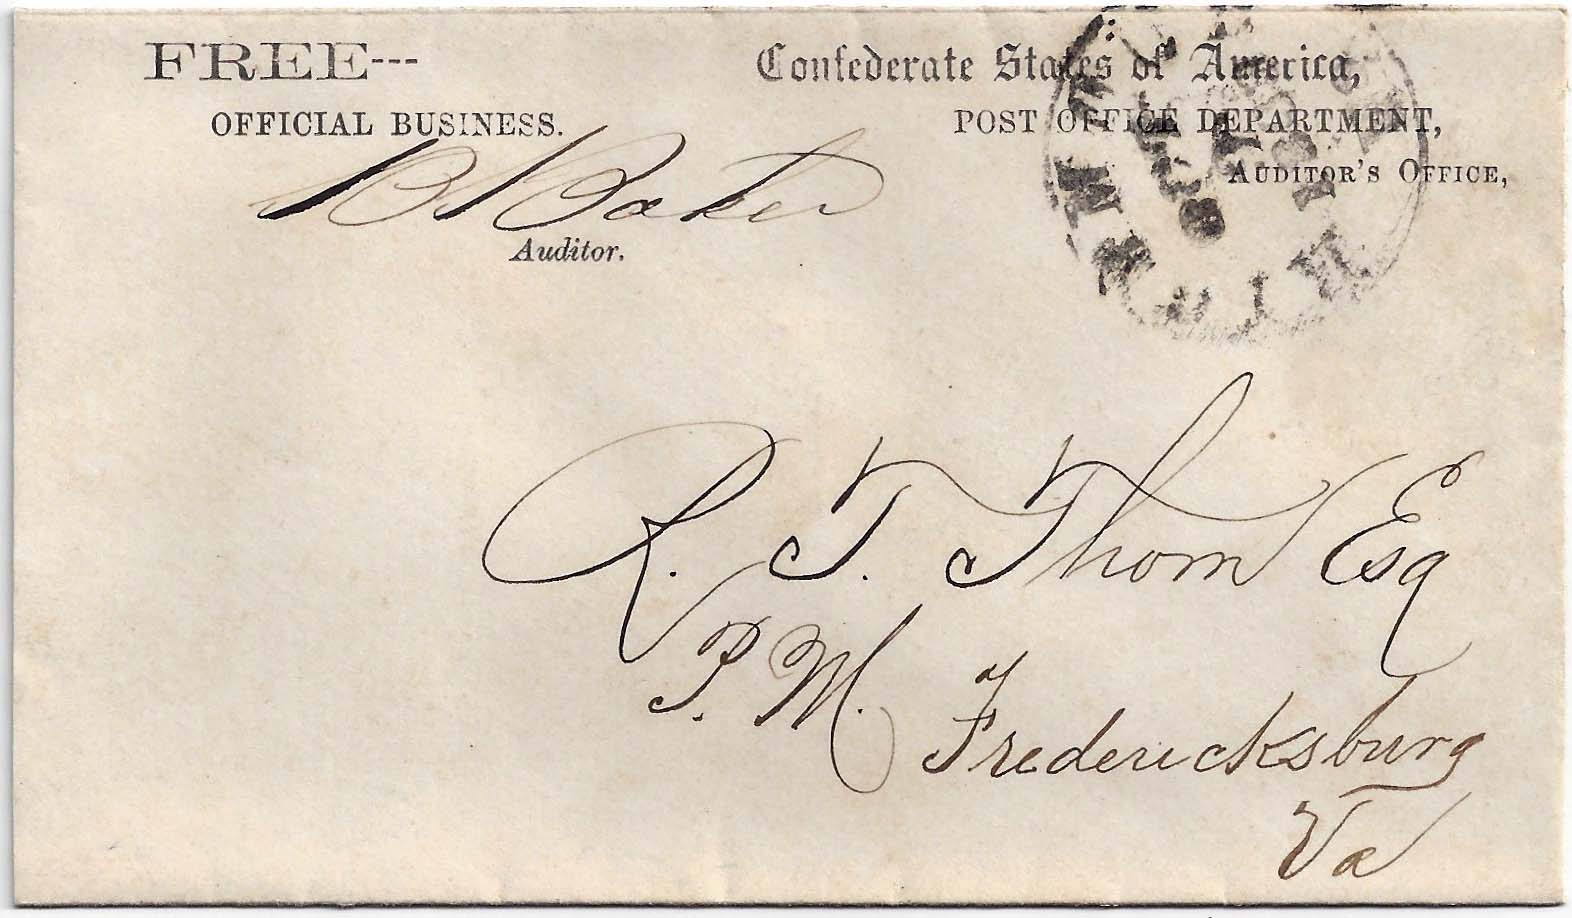 FREE---
OFFICIAL BUSINESS.
B Baker
Auditor.
Confederate States of America,
POST OFFICE DEPARTMENT,
AUDITOR'S OFFICE,
R. T. Thom Esq
P. M. Fredericksburg
Va